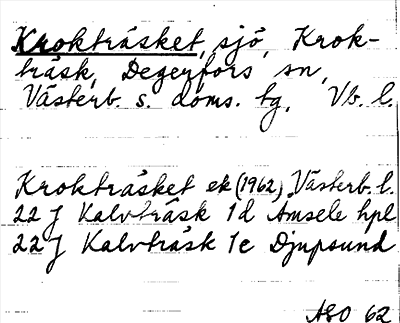 Krokträsket, sjö, Krok-
träsk, Degerfors sn,
Västerb. s. doms. tg, Vb. l.
Krokträsket ek (1962) Västerb. l.
22 J Kalvträsk 1d Amsele hpl
22 J Kalvträsk 1e Djupsund
ASO 62